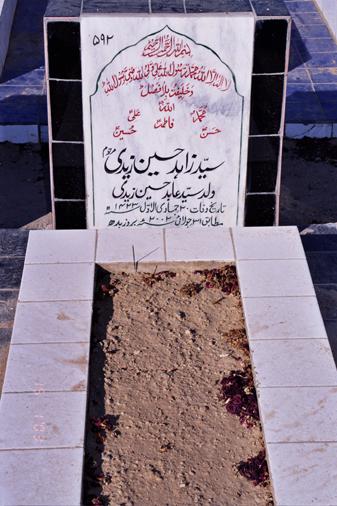 ۵۹۲
بسم اللہ الرحمن الرحیم
لا الہ الا اللہ محمد رسول اللہ علی ولی اللہ وصی رسول اللہ
وخلیفتہ بلا فصل
اللہ
محمد علی
فاطمہ
حسن حسین
سید زاہد حسین زیدی مرحوم
ولد سید عابد حسین زیدی
تاریخ وفات ۳۰ جمادی الاول ۱۴۲۳ھ
مطابق ۳۱ جولائی ۲۰۰۲ء بروز بدھ